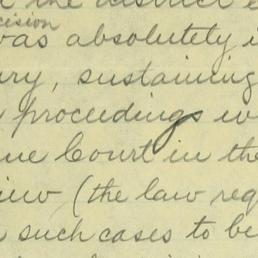 the district
cision
was absolutely i
ury, sustaining
proceedings w
me Court in the
iew (the law req
such cases to be